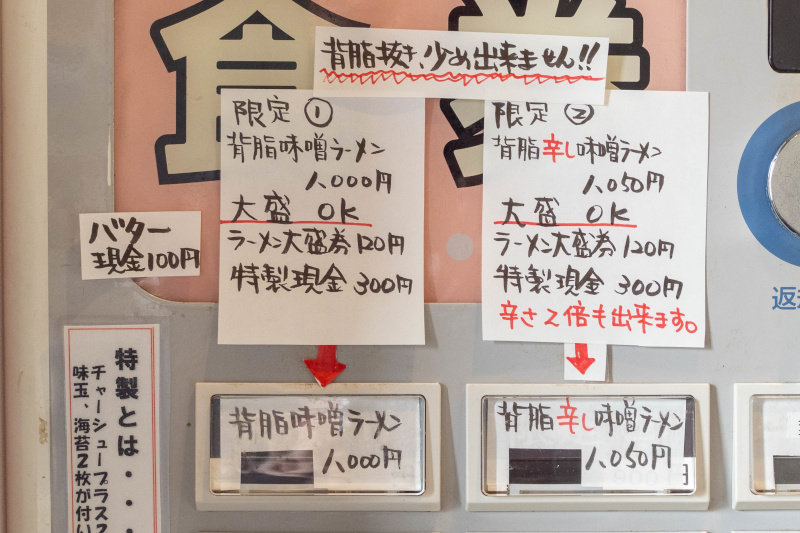 食券
背脂抜き、少め出来ません!!
限定 ①
背脂味噌ラーメン
1,000円
大盛 OK
ラーメン大盛券120円
特製現金300円
限定 ②
背脂辛し味噌ラーメン
1,050円
大盛 OK
ラーメン大盛券120円
特製現金300円
辛さ2倍も出来ます。
バター
現金100円
特製とは・・・
チャーシュープラス2
味玉、海苔2枚が付い
背脂味噌ラーメン
1,000円
背脂辛し味噌ラーメン
1,050円
円
返